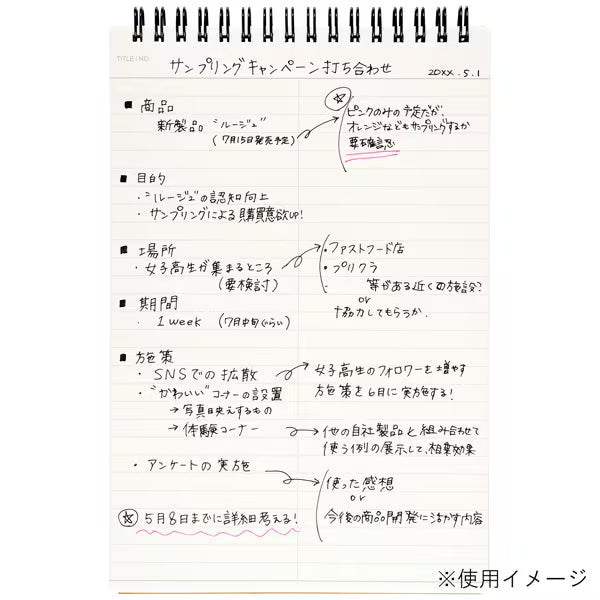 TITLE/NO.
サンプリングキャンペーン打ち合わせ
20XX.5.1
■ 商品
新製品 "ルージュ"
(7月15日発売予定)
☆
ピンクのみの予定だが、
オレンジなどもサンプリングするか
要確認
■ 目的
・"ルージュ"の認知向上
・サンプリングによる購買意欲UP!
■ 場所
・女子高生が集まるところ
(要検討)
・ファストフード店
・プリクラ
・ 等がある近くの施設?
or
協力してもらうか.
■ 期間
・1 week (7月中旬ぐらい)
■ 施策
・SNSでの拡散
女子高生のフォロワーを増やす
施策を6月に実施する!
・"かわいい"コーナーの設置
→写真映えするもの
→体験コーナー
他の自社製品と組み合わせて
使う例の展示して、相乗効果
・アンケートの実施
使った感想
or
今後の商品開発に活かす内容
☆ 5月8日までに詳細考える!
※使用イメージ